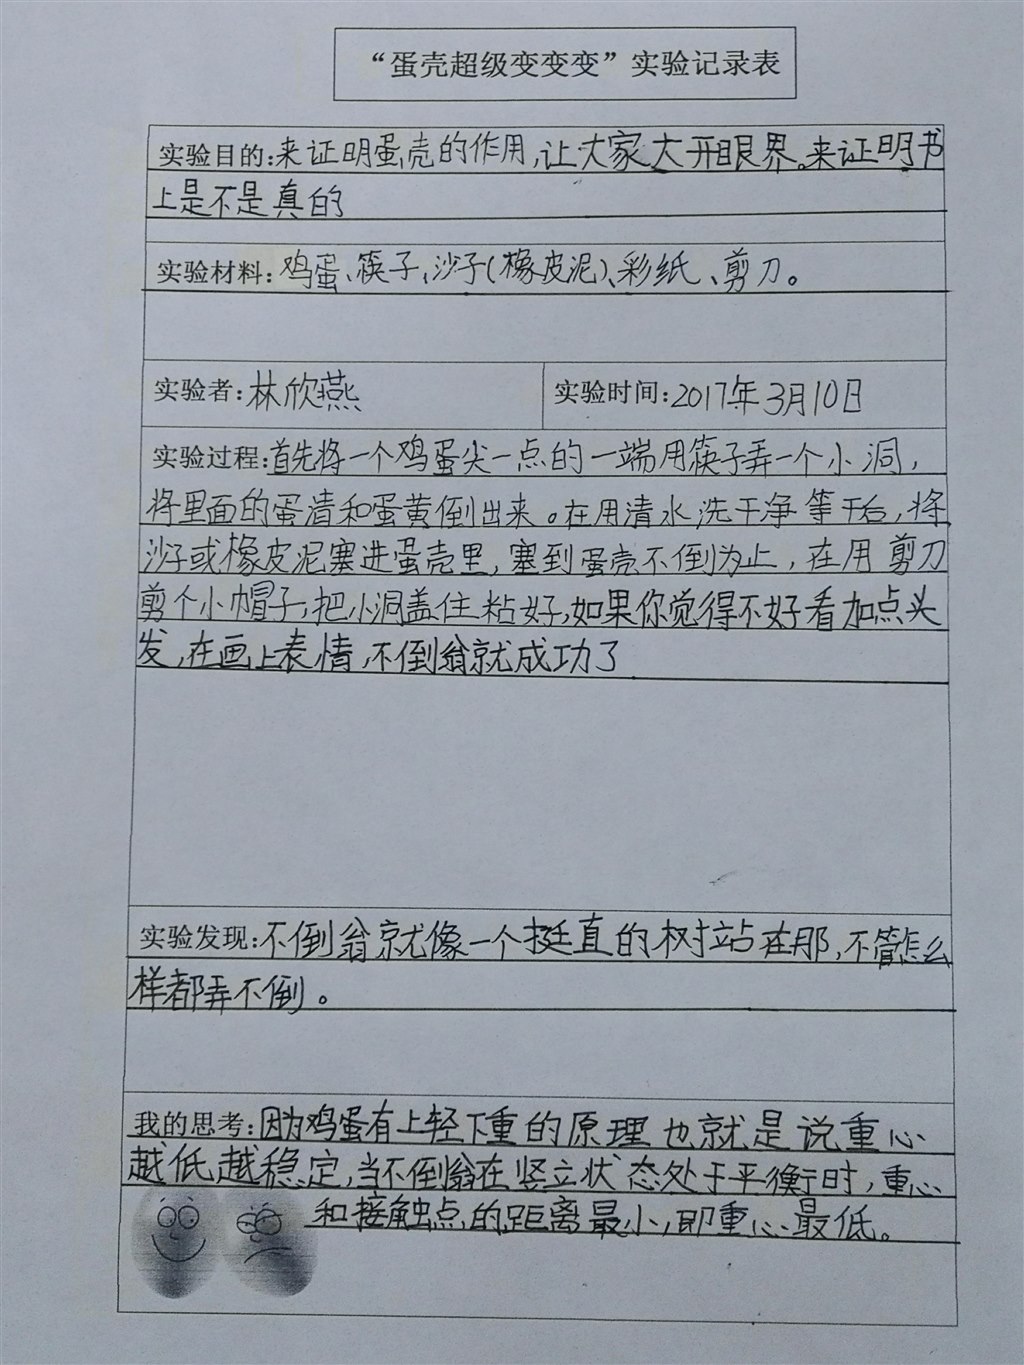 “蛋壳超级变变变”实验记录表
实验目的:来证明蛋壳的作用,让大家大开眼界。来证明书
上是不是真的
实验材料:鸡蛋、筷子、沙子(橡皮泥)、彩纸、剪刀。
实验者:林欣燕
实验时间:2017年3月10日
实验过程:首先将一个鸡蛋尖一点的一端用筷子弄一个小洞,
将里面的蛋清和蛋黄倒出来。在用清水洗干净等干后,将
沙子或橡皮泥塞进蛋壳里,塞到蛋壳不倒为止,在用剪刀
剪个小帽子,把小洞盖住粘好,如果你觉得不好看加点头
发,在画上表情,不倒翁就成功了
实验发现:不倒翁就像一个挺直的树站在那,不管怎么
样都弄不倒。
我的思考:因为鸡蛋有上轻下重的原理也就是说重心
越低越稳定,当不倒翁在竖立状态处于平衡时,重心
和接触点的距离最小,即重心最低。